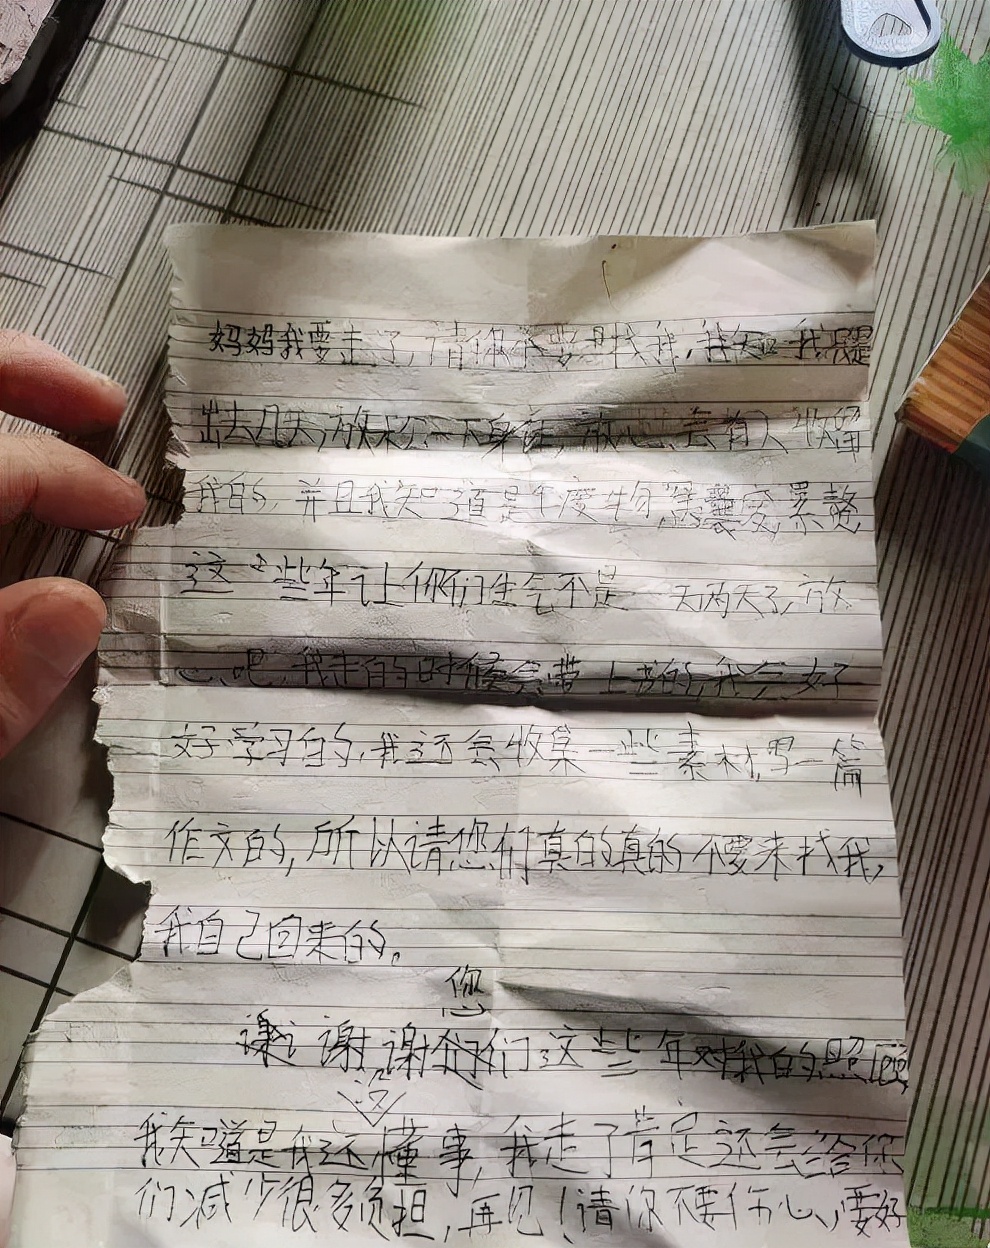 妈妈我要走了,请你不要来找我,我知 我只是
出去几天,放松一下身 ,放心,会有人收留
我的,并且我知道是 度
这 些年让你们生气不是一天两天了,放
心吧,我走的时候会带上书的,我会好
好学习的,我还会收集一些素材,写一篇
作文的,所以请您们真的真的不要来找我,
我自己回来的。
谢谢,谢谢您们这些年对我的照顾
我知道是我还没懂事,我走了肯定还会给你
们减少很多负担,再见!请你不要伤心,要好